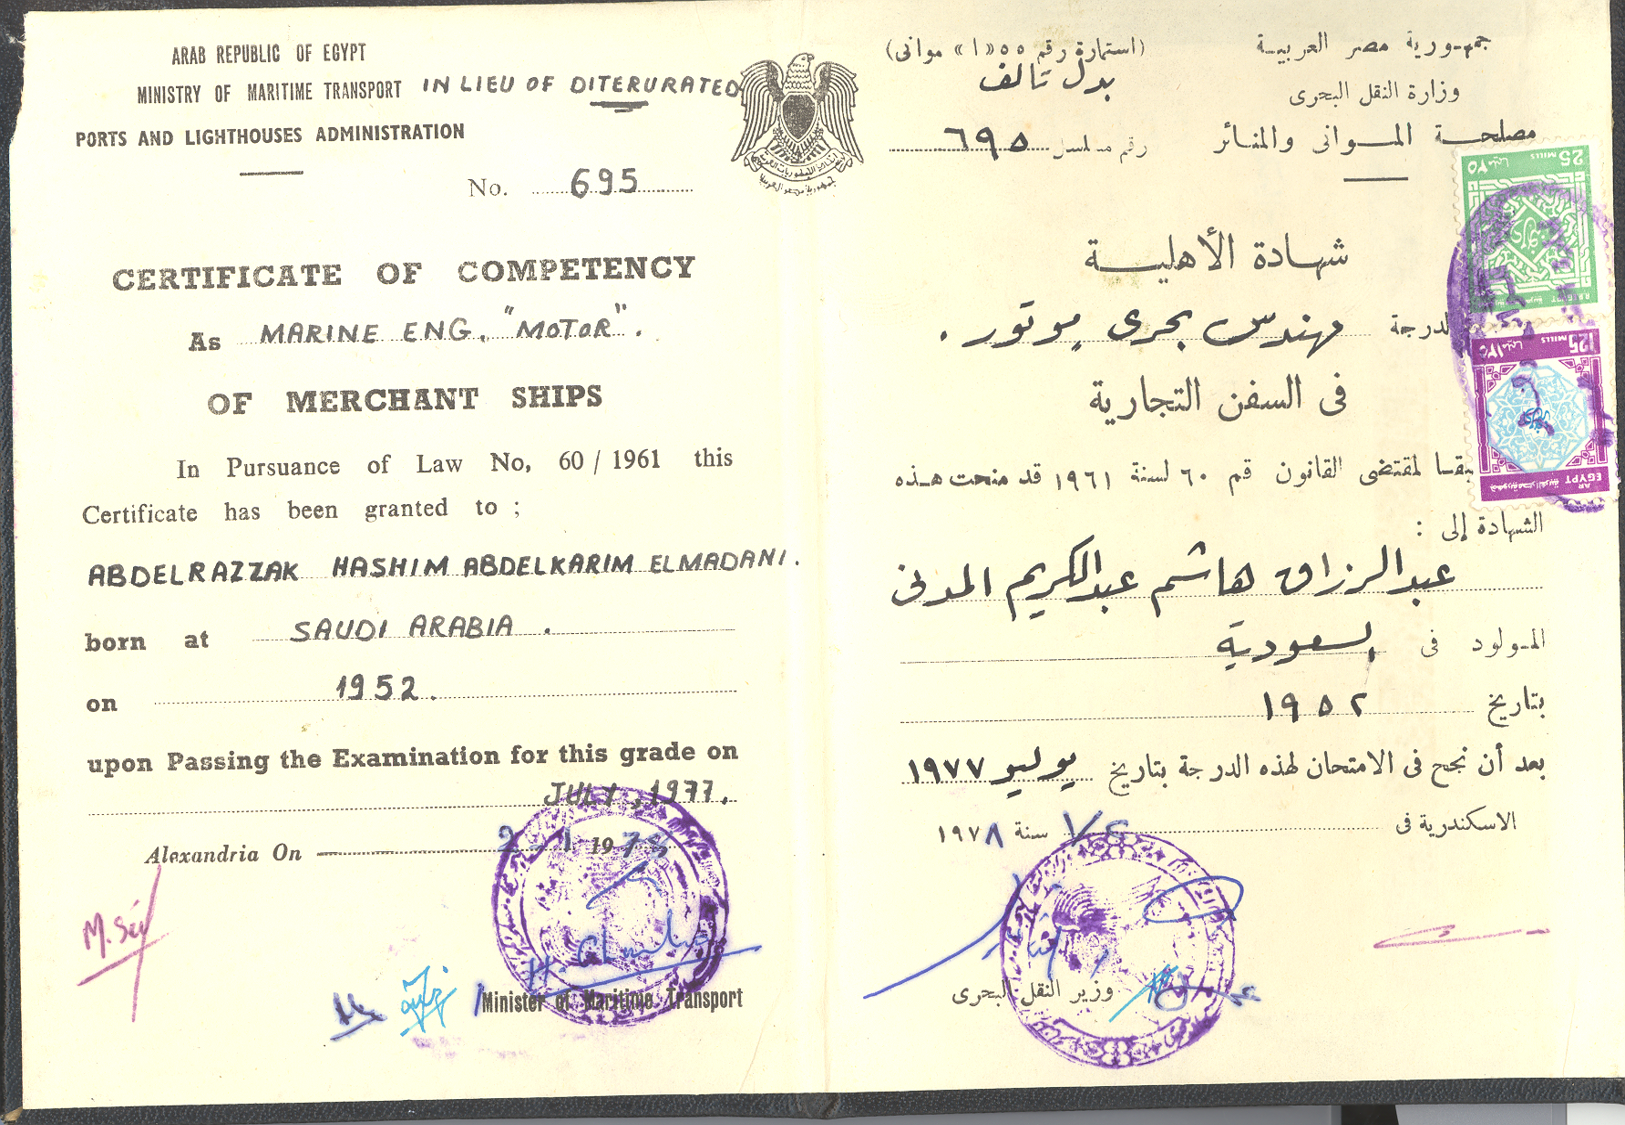 ARAB REPUBLIC OF EGYPT
MINISTRY OF MARITIME TRANSPORT IN LIEU OF DITERURATED
PORTS AND LIGHTHOUSES ADMINISTRATION
No. 695
CERTIFICATE OF COMPETENCY
As MARINE ENG. "MOTOR".
OF MERCHANT SHIPS
In Pursuance of Law No, 60 / 1961 this
Certificate has been granted to ;
ABDELRAZZAK HASHIM ABDELKARIM ELMADANI.
born at SAUDI ARABIA .
on 1952.
upon Passing the Examination for this grade on
JULY, 1977.
Alexandria On 2 1 1978
M. Sei
Minister of Maritime Transport
جمهورية مصر العربية
(استمارة رقم ٥٥ «١» موانى)
وزارة النقل البحرى
بدل تالف
مصلحة الموانى والمنائر
رقم مسلسل ٦٩٥
شهادة الأهلية
لدرجة مهندس بحرى موتور .
فى السفن التجارية
بقا لمقتضى القانون قم ٦٠ لسنة ١٩٦١ قد منحت هذه
الشهادة إلى :
عبد الرزاق هاشم عبد الكريم المدنى
المولود فى السعودية
بتاريخ ١٩٥٢
بعد أن نجح فى الامتحان لهذه الدرجة بتاريخ يوليو ١٩٧٧
الاسكندرية فى ١/٢ سنة ١٩٧٨
وزير النقل البحرى
25 MILLS ٢٥ مليما
125 MILLS ١٢٥ مليما
A.R. EGYPT